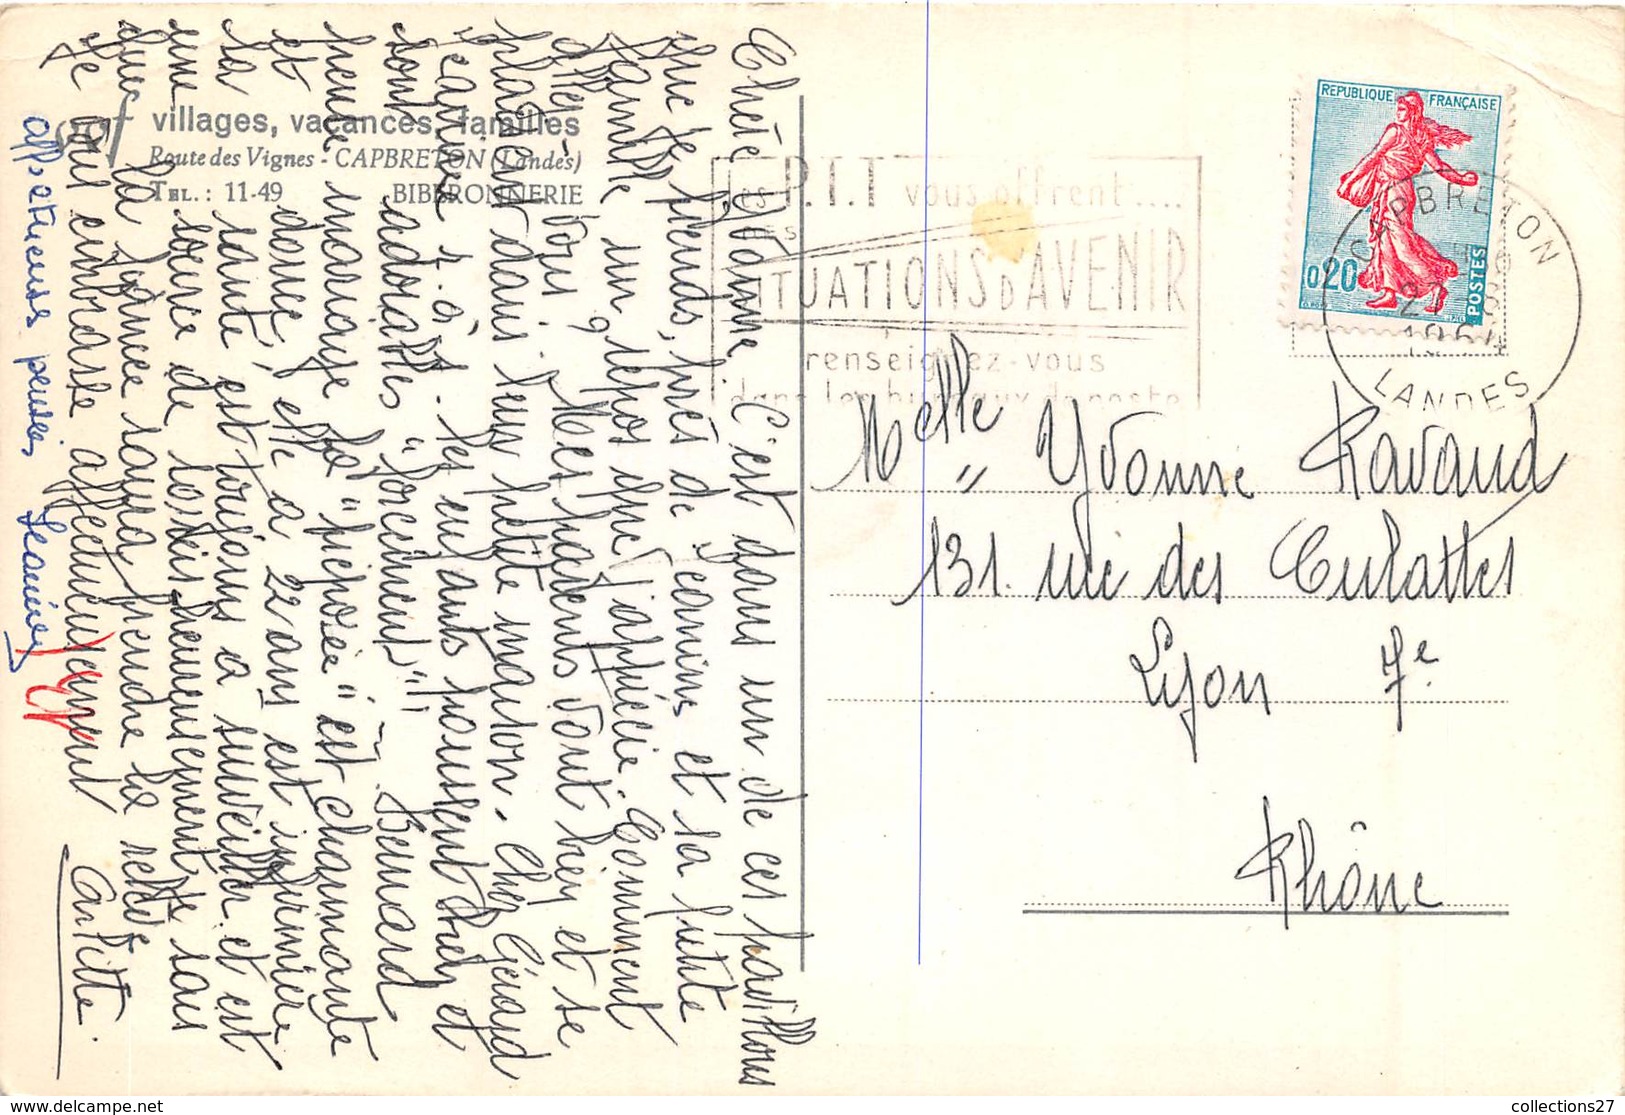 Chère Yvonne C'est dans un de ces pavillons
que je prends, près de Jeanine et sa petite
famille un repos que j'apprécie. Comment
allez-vous ? Mes parents vont bien et se
plaisent dans leur petite maison. Chez Gérard
Jeanine s. à s. les enfants poussent bien et
sont adorables "forcément"! Bernard
peute mariage la "fiposée" est charmante
et douce, elle a 22 ans est infirmière
la santé est toujours à surveiller et est
une source de soucis heureusement te sais
que la France saura prendre la relève
Je vous embrasse affectueusement Cathette.
affectueuses pensées Jeanine
vvf villages, vacances, familles
Route des Vignes - CAPBRETON (Landes)
TEL. : 11-49 BIBERONNERIE
Les P.I.T vous offrent....
DES
SITUATIONS D'AVENIR
renseignez-vous
dans les bureaux de poste
REPUBLIQUE FRANÇAISE
0,20
POSTES
CAPBRETON
1964
LANDES
Melle Yvonne Ravaud
131. rue des Culattes
Lyon 7e
Rhône
collections27